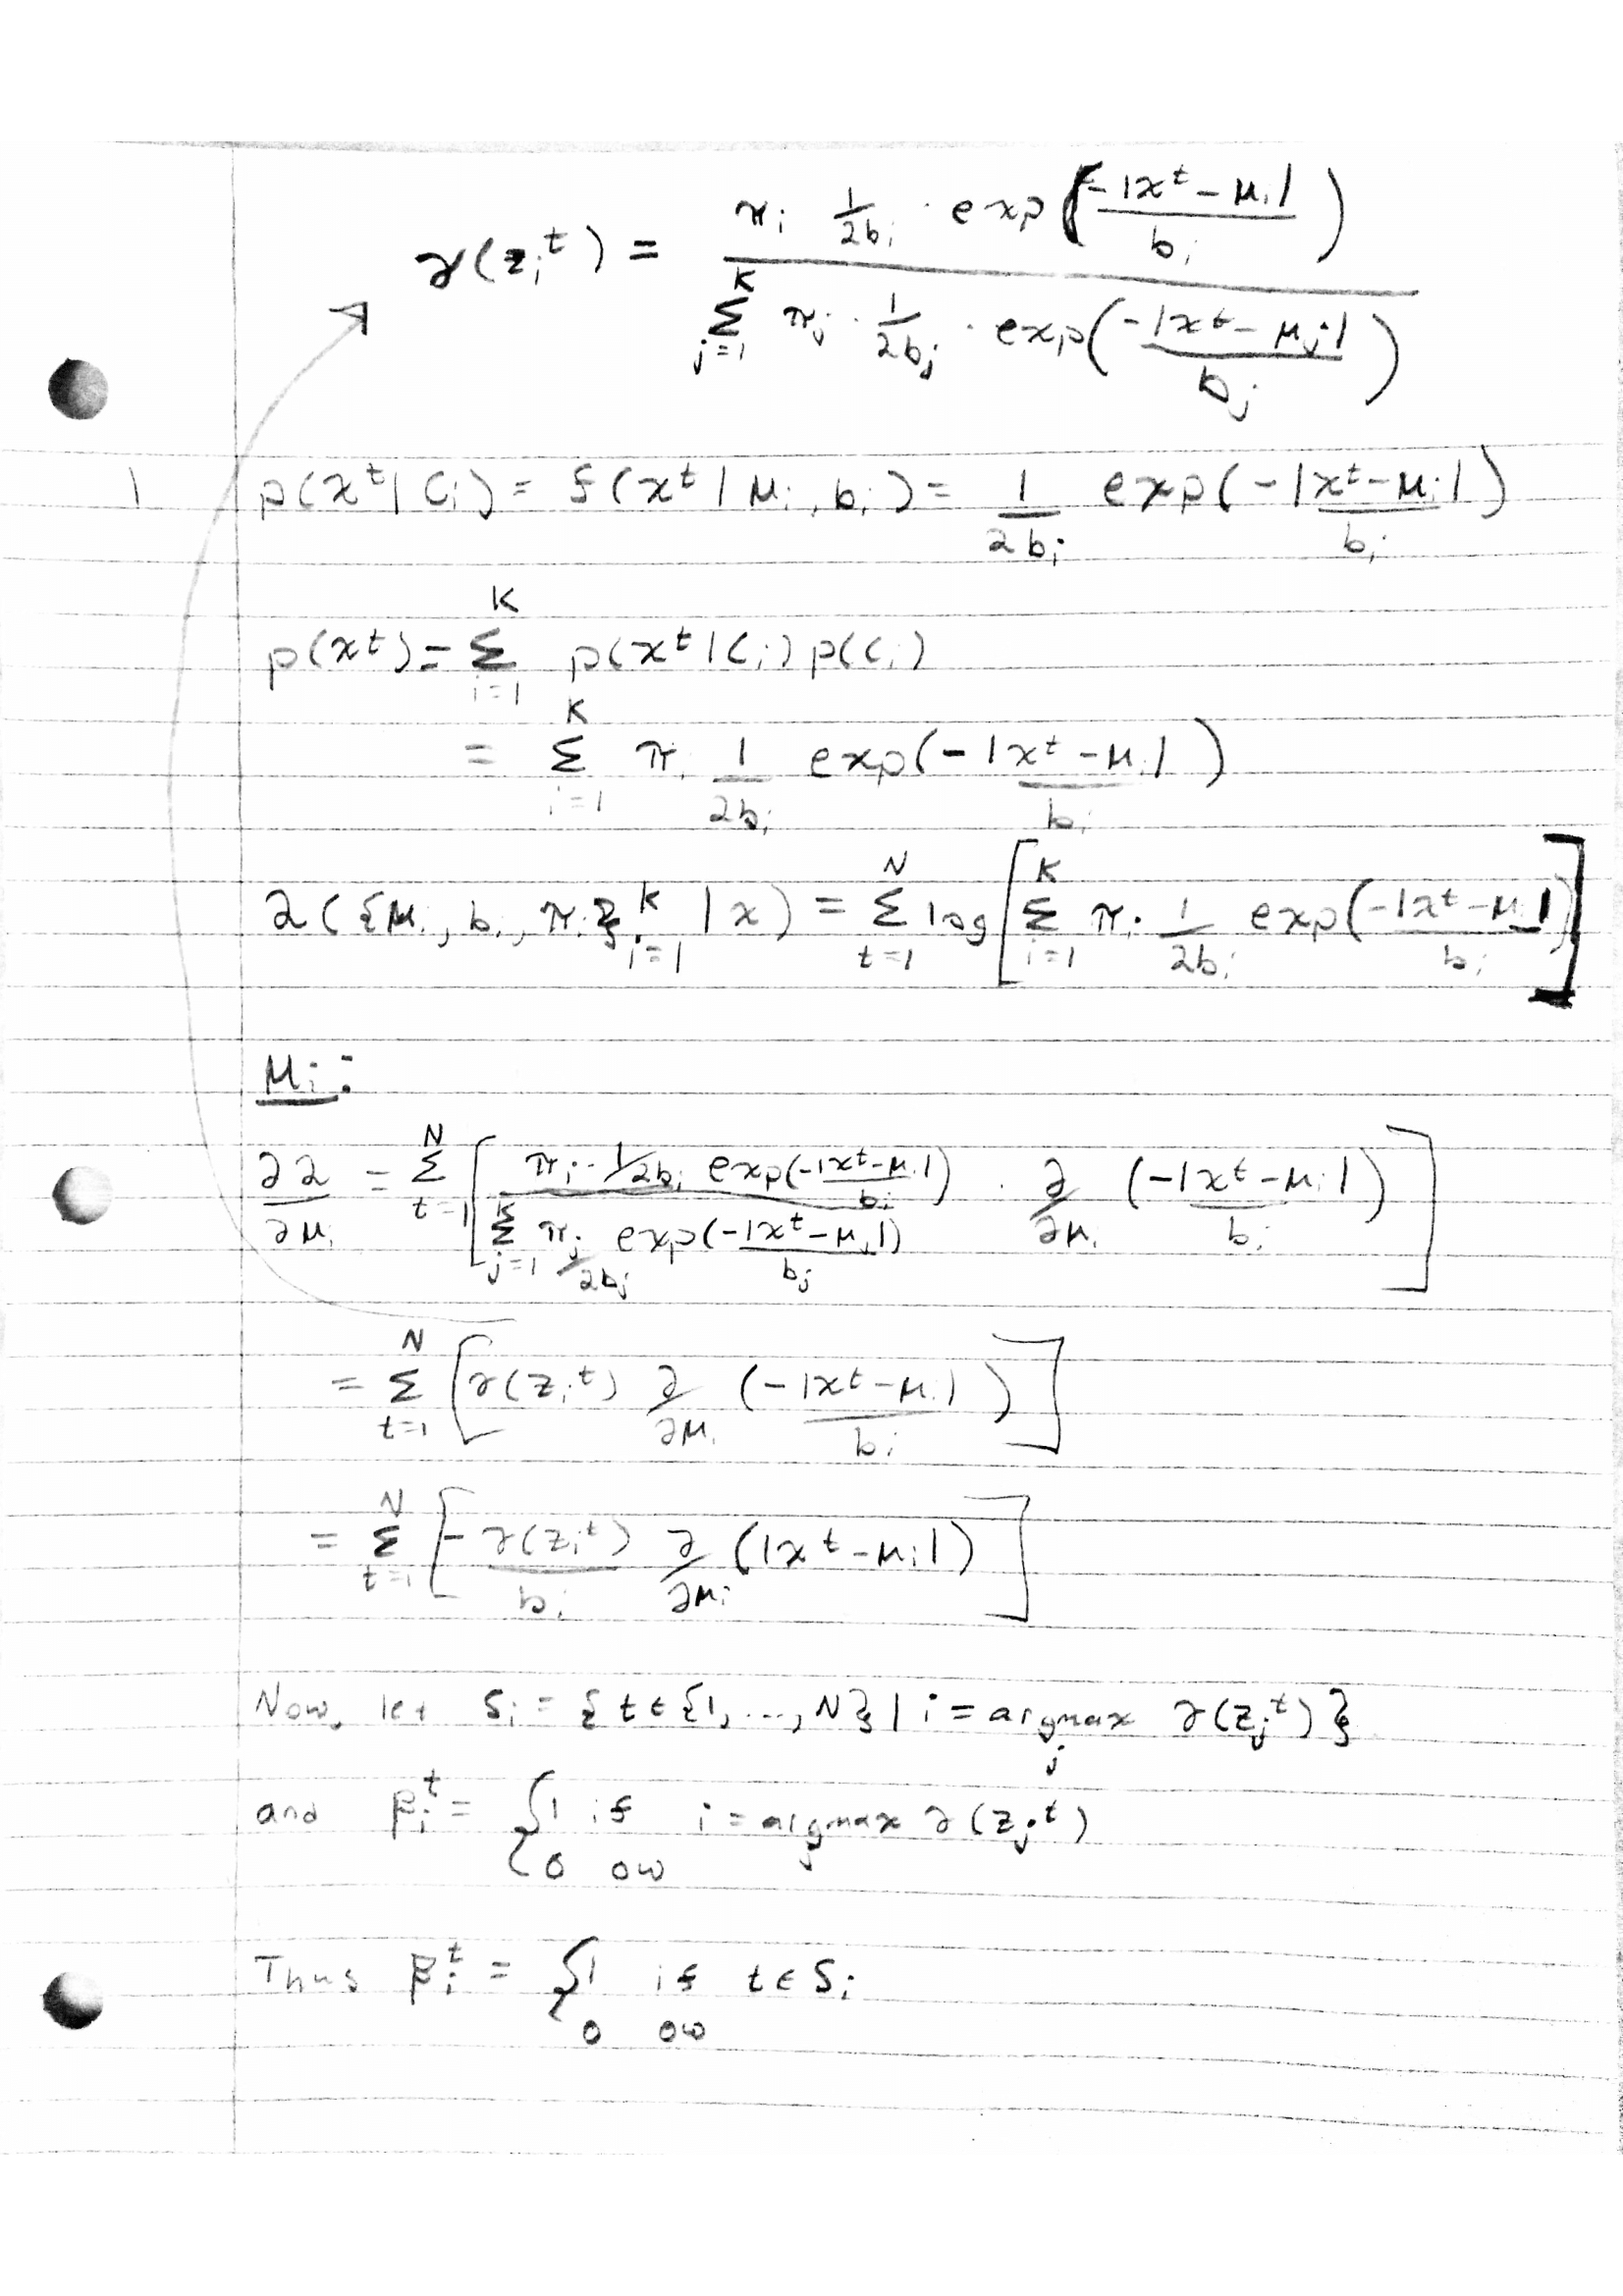 γ(z_i^t) = π_i 1/2b_i · exp(-|x^t - μ_i|/b_i) / Σ_{j=1}^K π_j · 1/2b_j · exp(-|x^t - μ_j|/b_j)
1 p(x^t | C_i) = f(x^t | μ_i, b_i) = 1/2b_i exp(-|x^t - μ_i|/b_i)
p(x^t) = Σ_{i=1}^K p(x^t | C_i) p(C_i)
= Σ_{i=1}^K π_i 1/2b_i exp(-|x^t - μ_i|/b_i)
L({μ_i, b_i, π_i}_{i=1}^K | x) = Σ_{t=1}^N log[Σ_{i=1}^K π_i 1/2b_i exp(-|x^t - μ_i|/b_i)]
μ_i:
∂L/∂μ_i = Σ_{t=1}^N [π_i · 1/2b_i exp(-|x^t - μ_i|/b_i) / Σ_{j=1}^K π_j 1/2b_j exp(-|x^t - μ_j|/b_j) · ∂/∂μ_i (-|x^t - μ_i|/b_i)]
= Σ_{t=1}^N [γ(z_i^t) ∂/∂μ_i (-|x^t - μ_i|/b_i)]
= Σ_{t=1}^N [-γ(z_i^t)/b_i ∂/∂μ_i (|x^t - μ_i|)]
Now, let S_i = {t ∈ {1, ..., N} | i = argmax_j γ(z_j^t)}
and β_i^t = {1 if i = argmax_j γ(z_j^t)
0 ow
Thus β_i^t = {1 if t ∈ S_i
0 ow